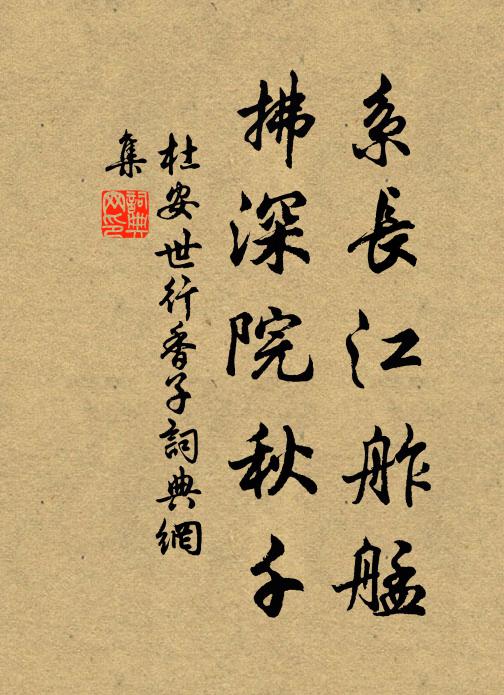 系長江舴艋
拂深院秋千
杜安世行香子詞典網
集
詞典網印